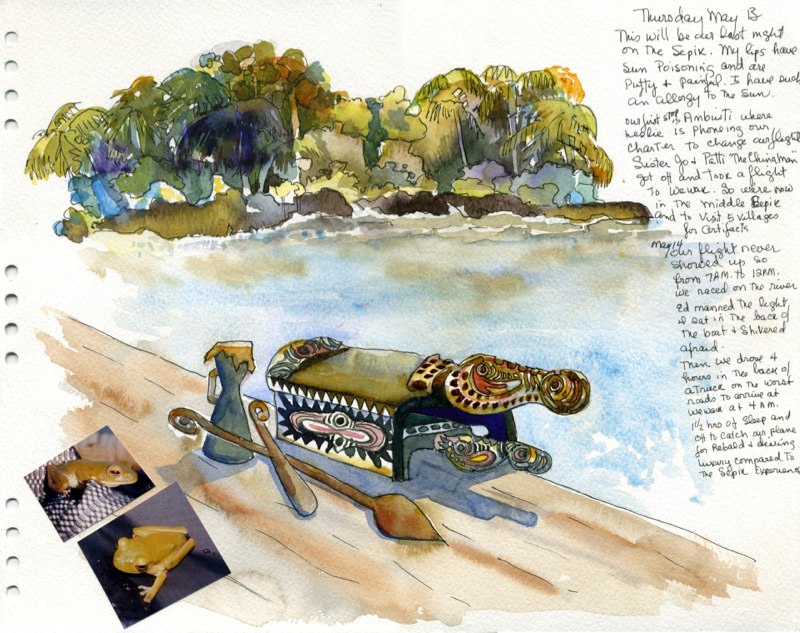 Thursday May 13
This will be our last night
on The Sepik. My lips have
Sun Poisoning and are
Puffy & painful. I have such
an allergy to the sun.
our first stop, Ambunti where
is phoning our
Charter to change our flight
Sister Jo & Patti "The China Man"
got off and took a flight
To Wewak. So we're now
in The middle Sepik
and to visit 5 villages
for artifacts
May 14
Our flight never
showed up so
from 7AM. to 12PM.
we raced on the river
Ed manned the light,
I sat in the back of
The boat & shivered
afraid.
Then we drove 4
hours in the back of
a Truck on the worst
roads to arrive at
Wewak at 4 AM.
1½ hrs of sleep and
off to catch our plane
for Rabaul & diving
luxury compared to
The Sepik Experience